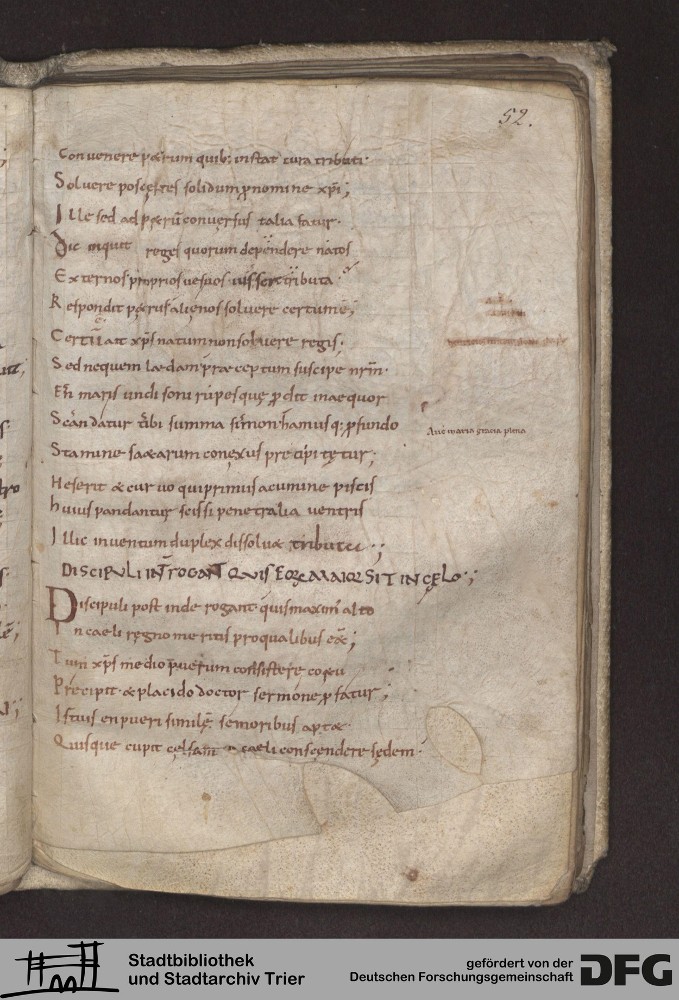 52.
Convenere pætrum quib; instat cura tributi.
Solvere poscentes solidum p nomine xpi;
Ille sed ad petrū conversus talia fatur.
Dic inquit reges quorum dependere natos
Externos proprios ve suos iussere tributa.
Respondit petrus alienos solvere certum ē;
Certū ait xps natum non solvere regis.
Sed ne quem lædam præceptum suscipe nrm.
En maris undisoni rupes quę pdit in aequor
Scandatur tibi summa simon hamusq; pfundo
Stamine saetarum conexus precipitetur;
Heserit & curvo qui primus acumine piscis
huius pandantur scissi penetralia ventris
Illic inventum duplex dissolue tributū;
DISCIPULI INTROGANT QUIS EORŪ MAIOR SIT IN CĘLO;
Discipuli post inde rogant quis maximus alto
In caeli regno meritis pro qualibus
Tum xps medio puerum consistere coetu
Precipit & placido doctor sermone pfatur;
Istius en pueri similē se moribus aptet
Quisque cupit cęlsam caeli conscendere sędem.
Ave maria gracia plena
Stadtbibliothek
und Stadtarchiv Trier
gefördert von der
Deutschen Forschungsgemeinschaft
DFG